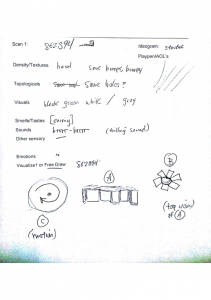 Scan 1: 862394 Ideogram: structure
Playpen/AOL's
Density/Textures hard some bumps, bumpy
Topologicals some holes?
Visuals black green white / gray
Smells/Tastes [strong]
Sounds (rolling sound)
Other sensory
Emotions
Visualize1 or Free Draw 862394
A
B
(top view)
of A
C
(motion)